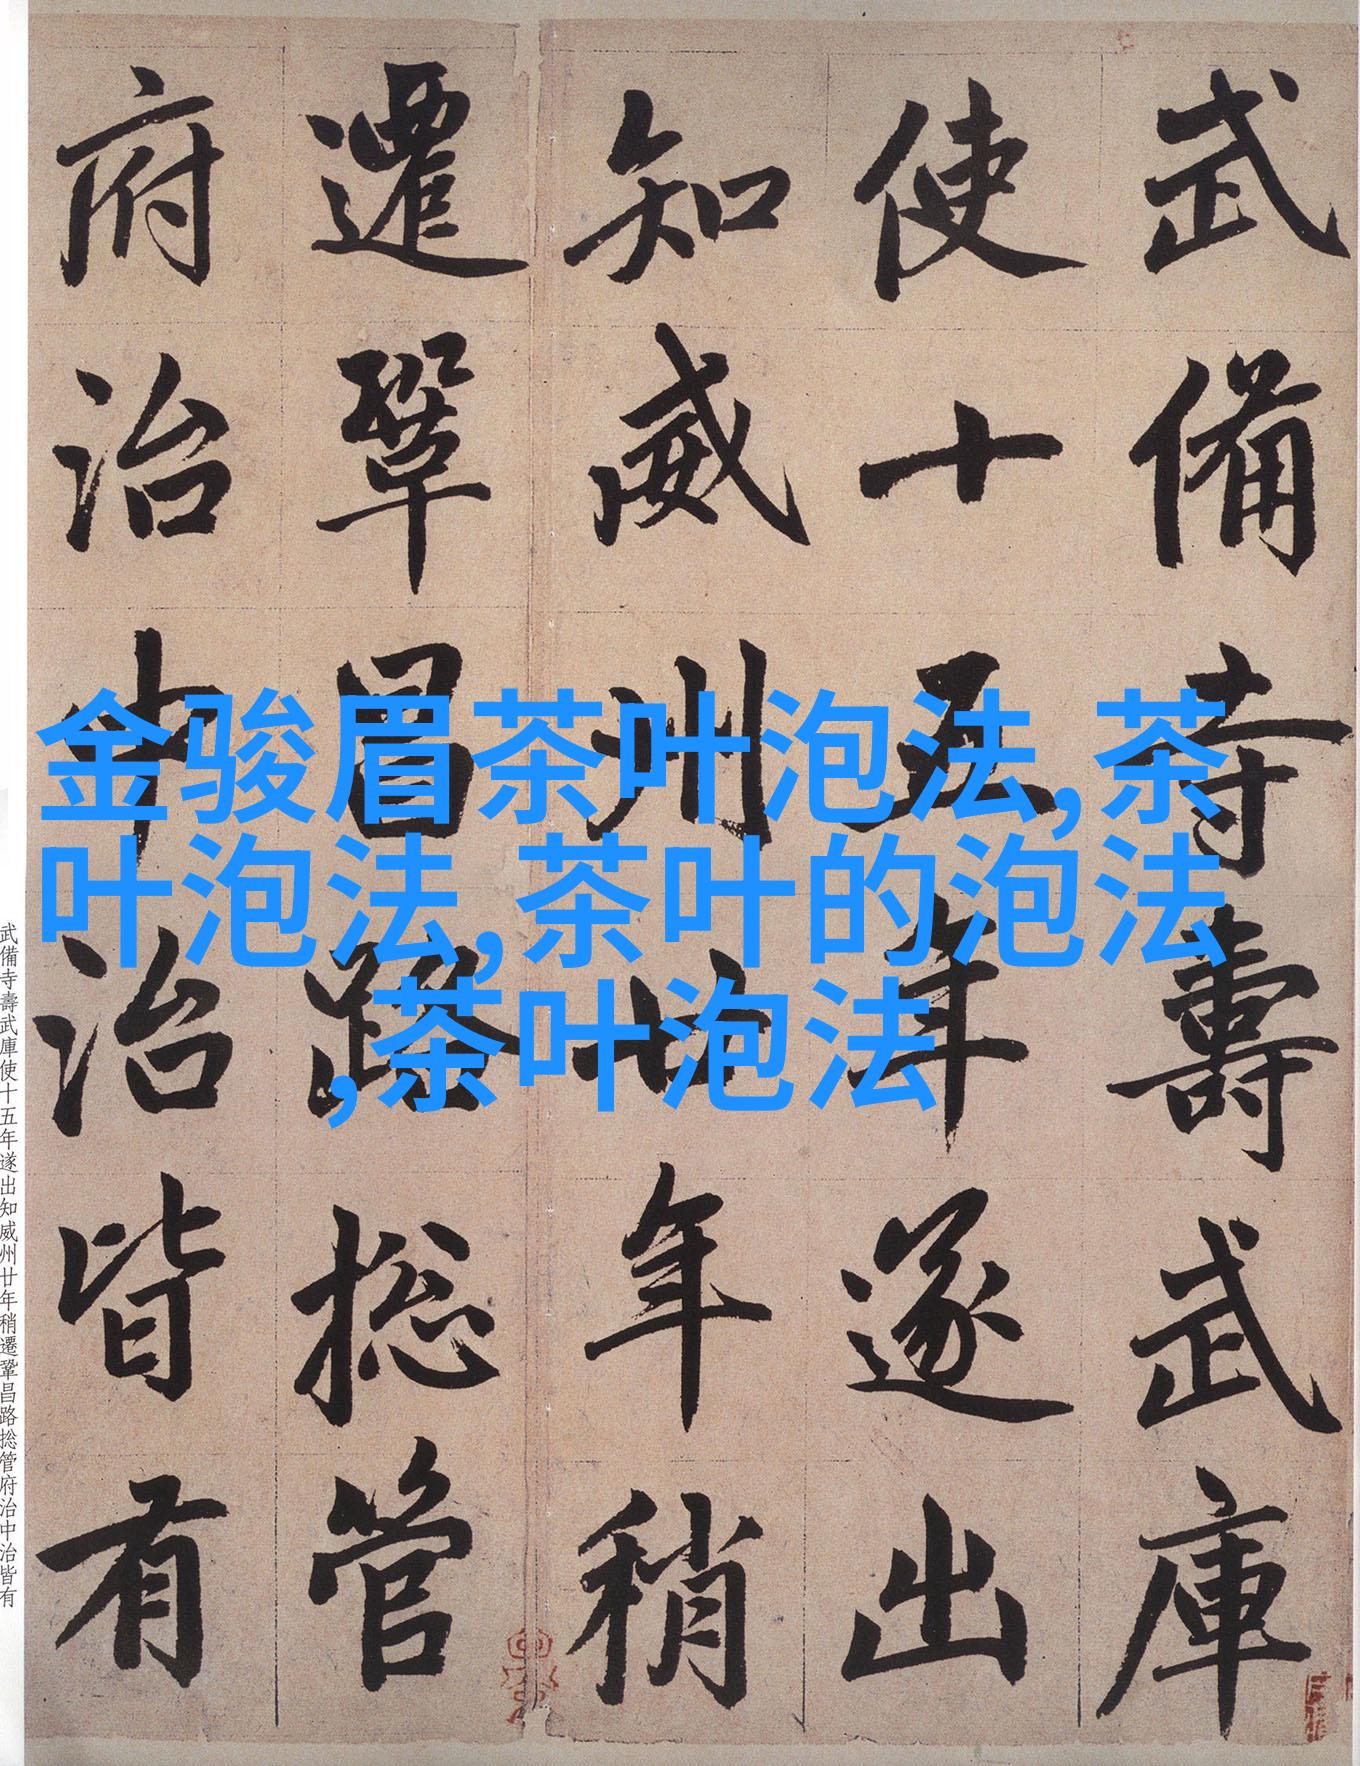 武備寺壽武庫
使十五年遂出
知威州廿年稍
遷鞏昌路捴管
府治中治皆有
金骏眉茶叶泡法,茶
叶泡法,茶叶的泡法
,茶叶泡法
武備寺壽武庫使十五年遂出知威州廿年稍遷鞏昌路捴管府治中治皆有